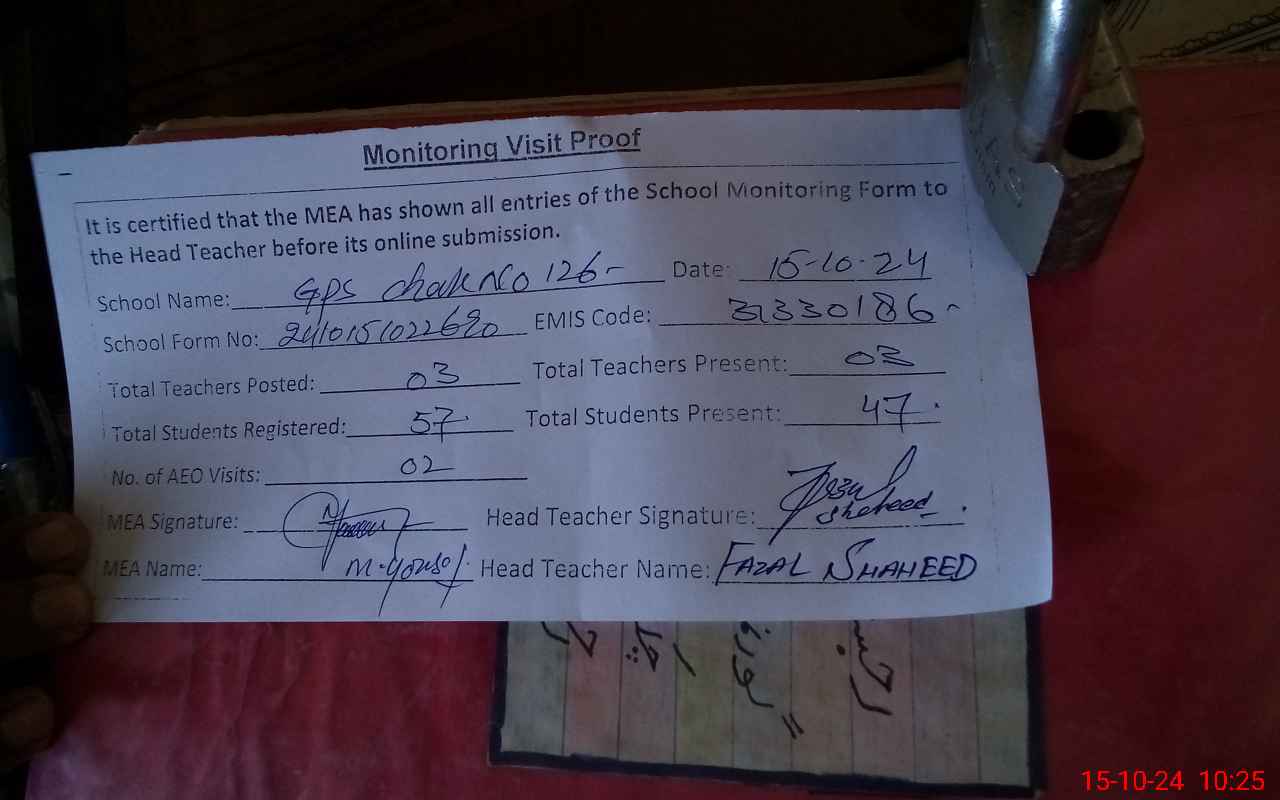 Monitoring Visit Proof
It is certified that the MEA has shown all entries of the School Monitoring Form to
the Head Teacher before its online submission.
School Name: GPS Chak No 126- Date: 15-10-24
School Form No: 2410151022620 EMIS Code: 31330186-
Total Teachers Posted: 03 Total Teachers Present: 03
Total Students Registered: 57. Total Students Present: 47.
No. of AEO Visits: 02
MEA Signature: Head Teacher Signature: Shaheed
MEA Name: M. Yousaf Head Teacher Name: FAZAL SHAHEED
15-10-24 10:25